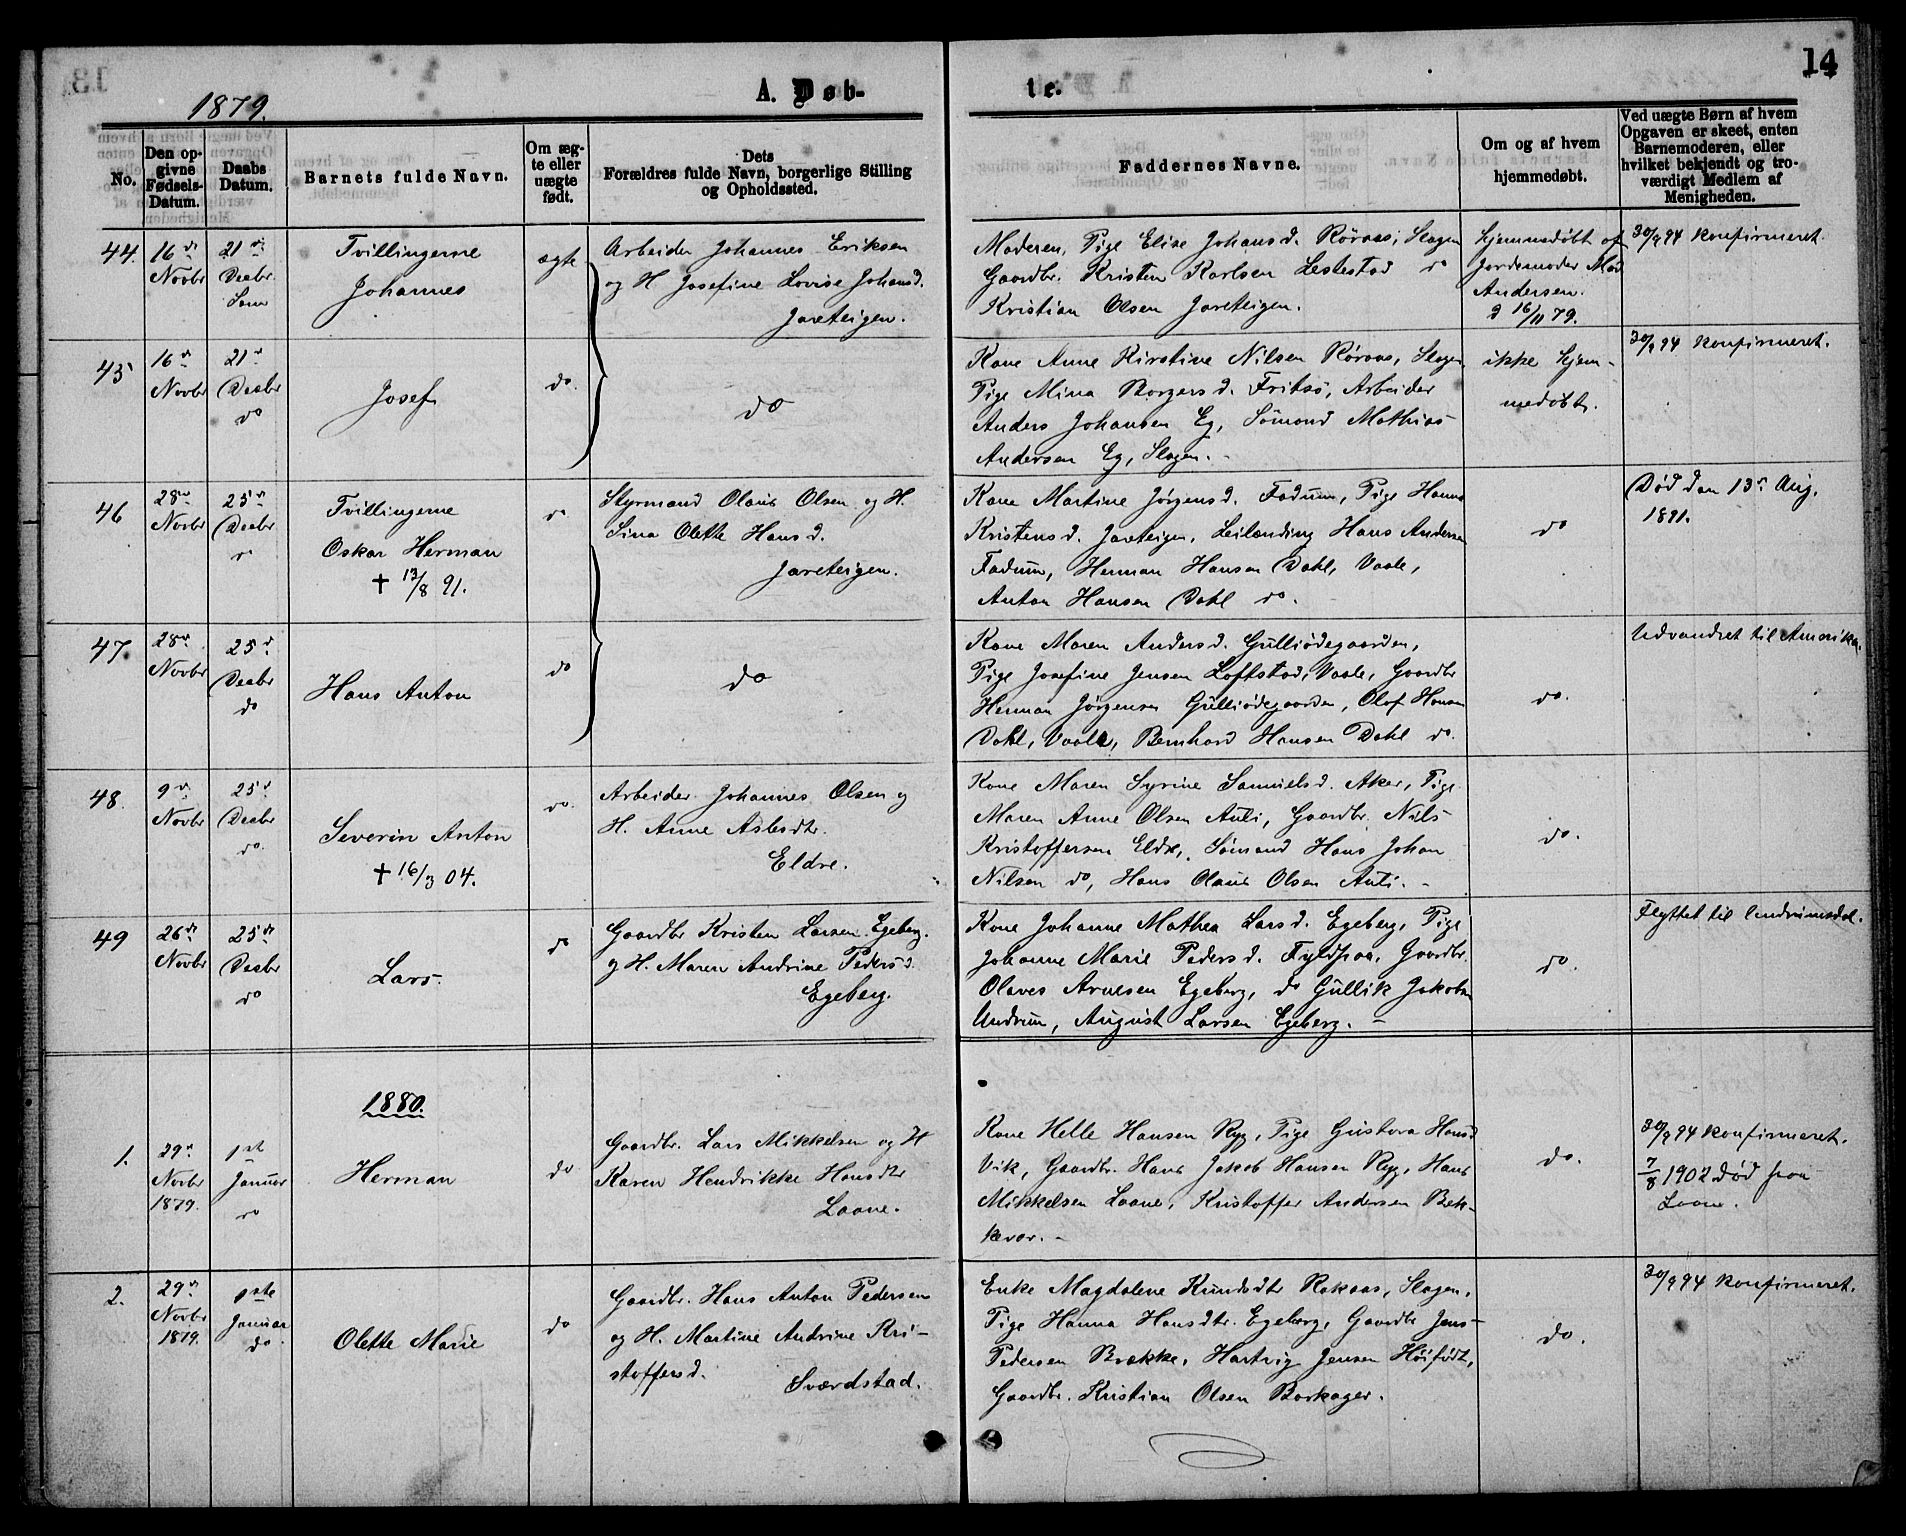 14
1879.
A. Døb-
te.
No.
Den op-
givne
Fødsels-
Datum.
Daabs
Datum.
Barnets fulde Navn.
Om æg-
te eller
uægte
født.
Dets
Forældres fulde Navn, borgerlige Stilling
og Opholdssted.
Faddernes Navne.
Om og af hvem
hjemmedøbt.
Ved uægte Børn af hvem
Opgaven er skeet, enten
Barnemoderen, eller
hvilket bekjendt og tro-
værdigt Medlem af
Menigheden.
44.
16de
Novbr
21de
Decbr
Tvillingerne
Johannes
ægte
Arbeider Johannes Eriksen
og H Josefine Lovise Johansd.
Jareteigen.
Moderen, Pige Elise Johansd. Røraas, Slagen
Gaardbr. Kristen Karlsen Lestestad do
Kristian Olsen Jareteigen.
hjemmedøbt af
Jordemoder Mad
Andersen.
d 16/11 79.
30/9 94 konfirmeret.
45
16de
Novbr
21de
Decbr
do
Josef
do.
do
Kone Anne Kirstine Nilsen Røraas, Slagen
Pige Mina Borgersd. Fritsø, Arbeider
Anders Johansen Eg, Sömand Mathias
Andersen Eg, Slagen.
ikke hjem-
medøbt.
30/9 94 konfirmeret.
46
28de
Novbr
25de
Decbr
do
Tvillingerne
Oskar Herman
† 13/8 91.
do
Styrmand Olaus Olsen og H.
Sina Olette Hansd.
Jareteigen.
Kone Martine Jørgensd. Fadum, Pige Hanna
Kristensd. Jareteigen, Leilænding Hans Andersen
Fadum, Herman Hansen Dahl, Vaale,
Anton Hansen Dahl do.
do
Död den 13de Aug.
1891.
47
28de
Novbr
25de
Decbr
do
Hans Anton
do
do
Kone Maren Andersd. Gulliødegaarden,
Pige Josefine Jensen Loftstad, Vaale, Gaardbr
Herman Jørgensen Gulliödegaarden, Olaf Hansen
Dahl, Vaale, Bernhard Hansen Dahl do.
do.
Udvandret til Amerika.
48.
9de
Novbr
25de
Decbr
do.
Severin Anton
† 16/3 04.
do.
Arbeider Johannes Olsen og
H. Anne Aslesdtr.
Eldre.
Kone Maren Syrine Samuelsd. Aker, Pige
Maren Anne Olsen Auli, Gaardbr. Nils
Kristoffersen Eldre, Sömand Hans Johan
Nilsen do, Hans Olaus Olsen Auli. -
do.
49
26de
Novbr
25de
Decbr
do
Lars.
do
Gaardbr Kristen Larsen Egeberg.
og H. Maren Andrine Pedersd.
Egeberg.
Kone Johanne Mathea Larsd. Egeberg, Pige
Johanne Marie Pedersd. Fyldpaa, Gaardbr.
Olaves Arnesen Egeberg, do Gullik Jakobsen
Undrum, August Larsen Egeberg. -
do.
Flyttet til Undrumsdal.
1880.
1.
29de
Novbr
1879.
1ste
Januar
do
Herman
do
Gaardbr. Lars Mikkelsen og H
Karen Hendrikke Hansdtr
Laane.
Kone Helle Hansen Ryg, Pige Gustava Hansd
Vik, Gaardbr. Hans Jakob Hansen Ryg, Hans
Mikkelsen Laane, Kristoffer Andersen Bek-
kevar. -
do.
30/9 94 konfirmeret.
7/8 1902 död paa
Laane.
2.
29de
Novbr
1879.
1ste
Januar
do.
Olette Marie
do
Gaardbr. Hans Anton Pedersen
og H. Martine Andrine Kri-
stoffersd.
Sværdstad.
Enke Magdalene Knudsdtr Rakaas, Slagen,
Pige Hanna Hansdtr. Egeberg, Gaardbr Jens
Pedersen Brække, Hartvig Jensen Höifödt,
Gaardbr. Kristian Olsen Borkager.
do.
30/9 94 konfirmeret.